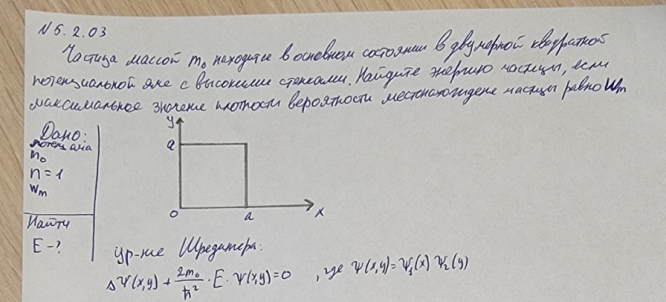 № 5.2.03
Частица массой m₀ находится в основном состоянии в двумерной квадратной
потенциальной яме с высокими стенками. Найдите энергию частицы, если
максимальное значение плотности вероятности местонахождения частицы равно Wm
Дано:
потенц яма
m₀
n = 1
Wm
Найти
E - ?
y
a
0
a
x
ур-ние Шредингера:
Δ Ψ(x,y) + 2m₀/ħ² · E · Ψ(x,y) = 0 , где Ψ(x,y) = Ψ₁(x) Ψ₂(y)